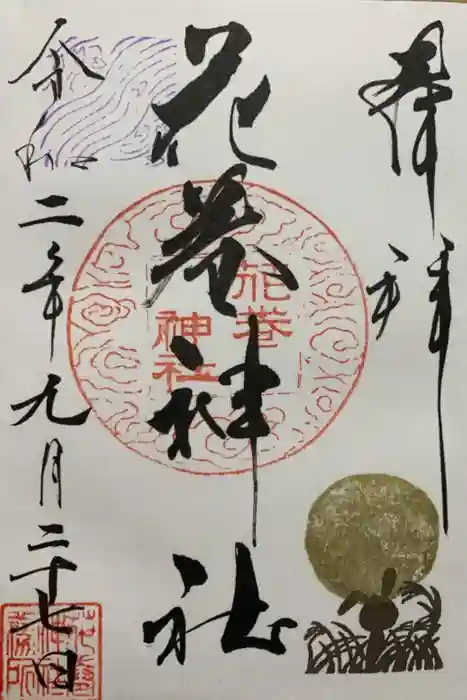 奉拝
花巻神社
令和二年九月二十七日
花巻
神社
花巻
神社
務所